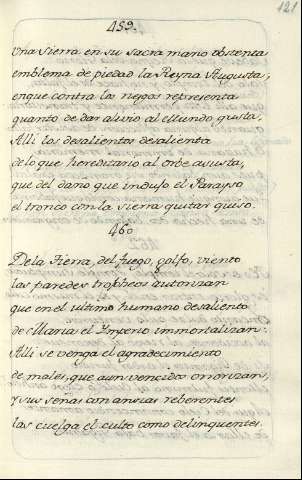 121
459.
Una Sierra en su sacra mano obstenta
emblema de piedad la Reyna Augusta,
en que contra los riegos representa
quanto de dar alivio al Mundo gusta.
Alli los desalientos desalienta
de lo que hereditario al orbe asusta,
que del daño que indujo el Parayso
el tronco con la sierra quitar quiso.
460
De la Tierra, del fuego, golfo, viento
las paredes tropheos autorizan
que en el ultimo humano desaliento
de Maria el Imperio immortalizan.
Alli se venga el agradecimiento
de males, que aun vencidos
y sus señas con ansias reberentes
las cuelga el culto como delinquentes.